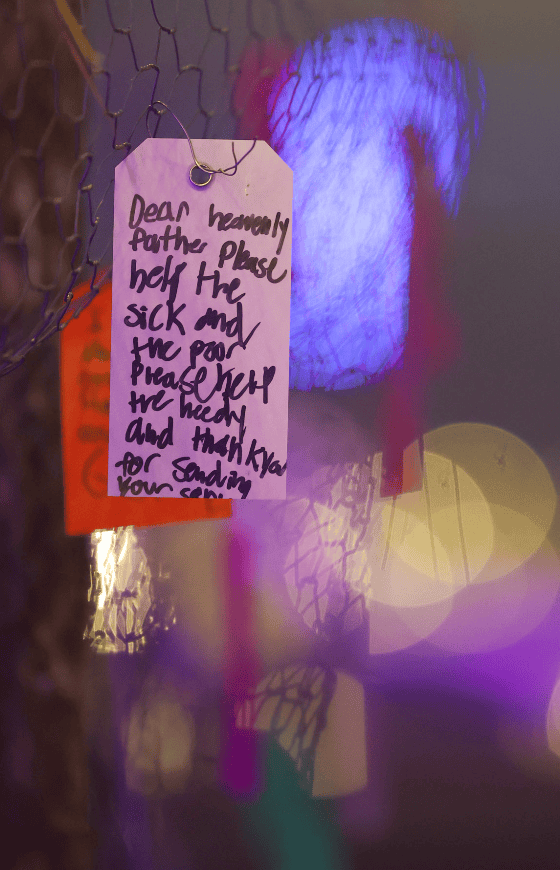 Dear heavenly
father Please
help the
sick and
the poor
Please help
the needy
and thank you
for sending
your